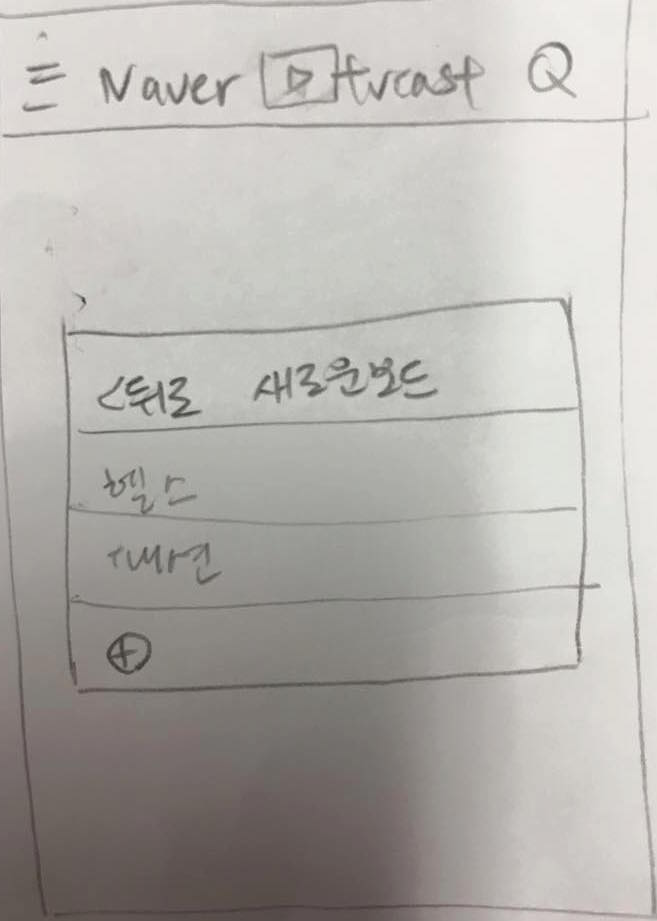 Naver tvcast
<뒤로 새로운보드
헬스